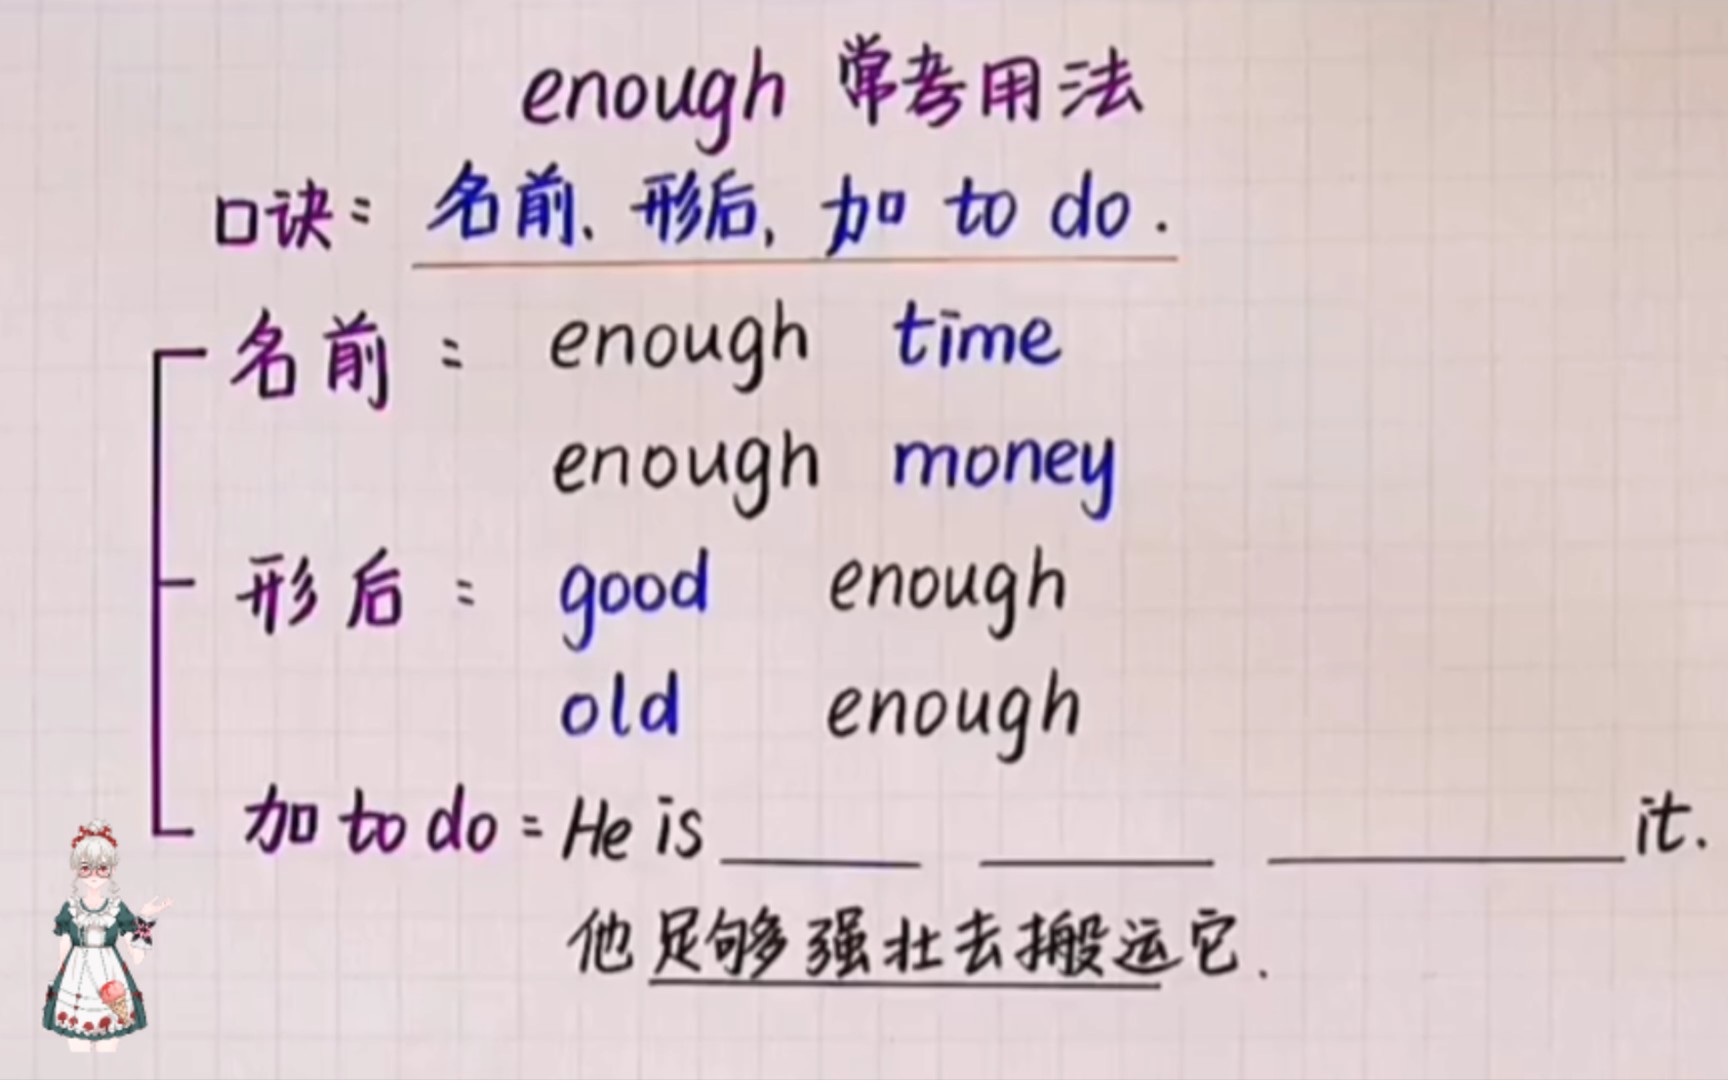 enough 常考用法
口诀: 名前、形后, 加 to do.
名前: enough time
enough money
形后: good enough
old enough
加 to do: He is ____ ____ ____ it.
他足够强壮去搬运它.